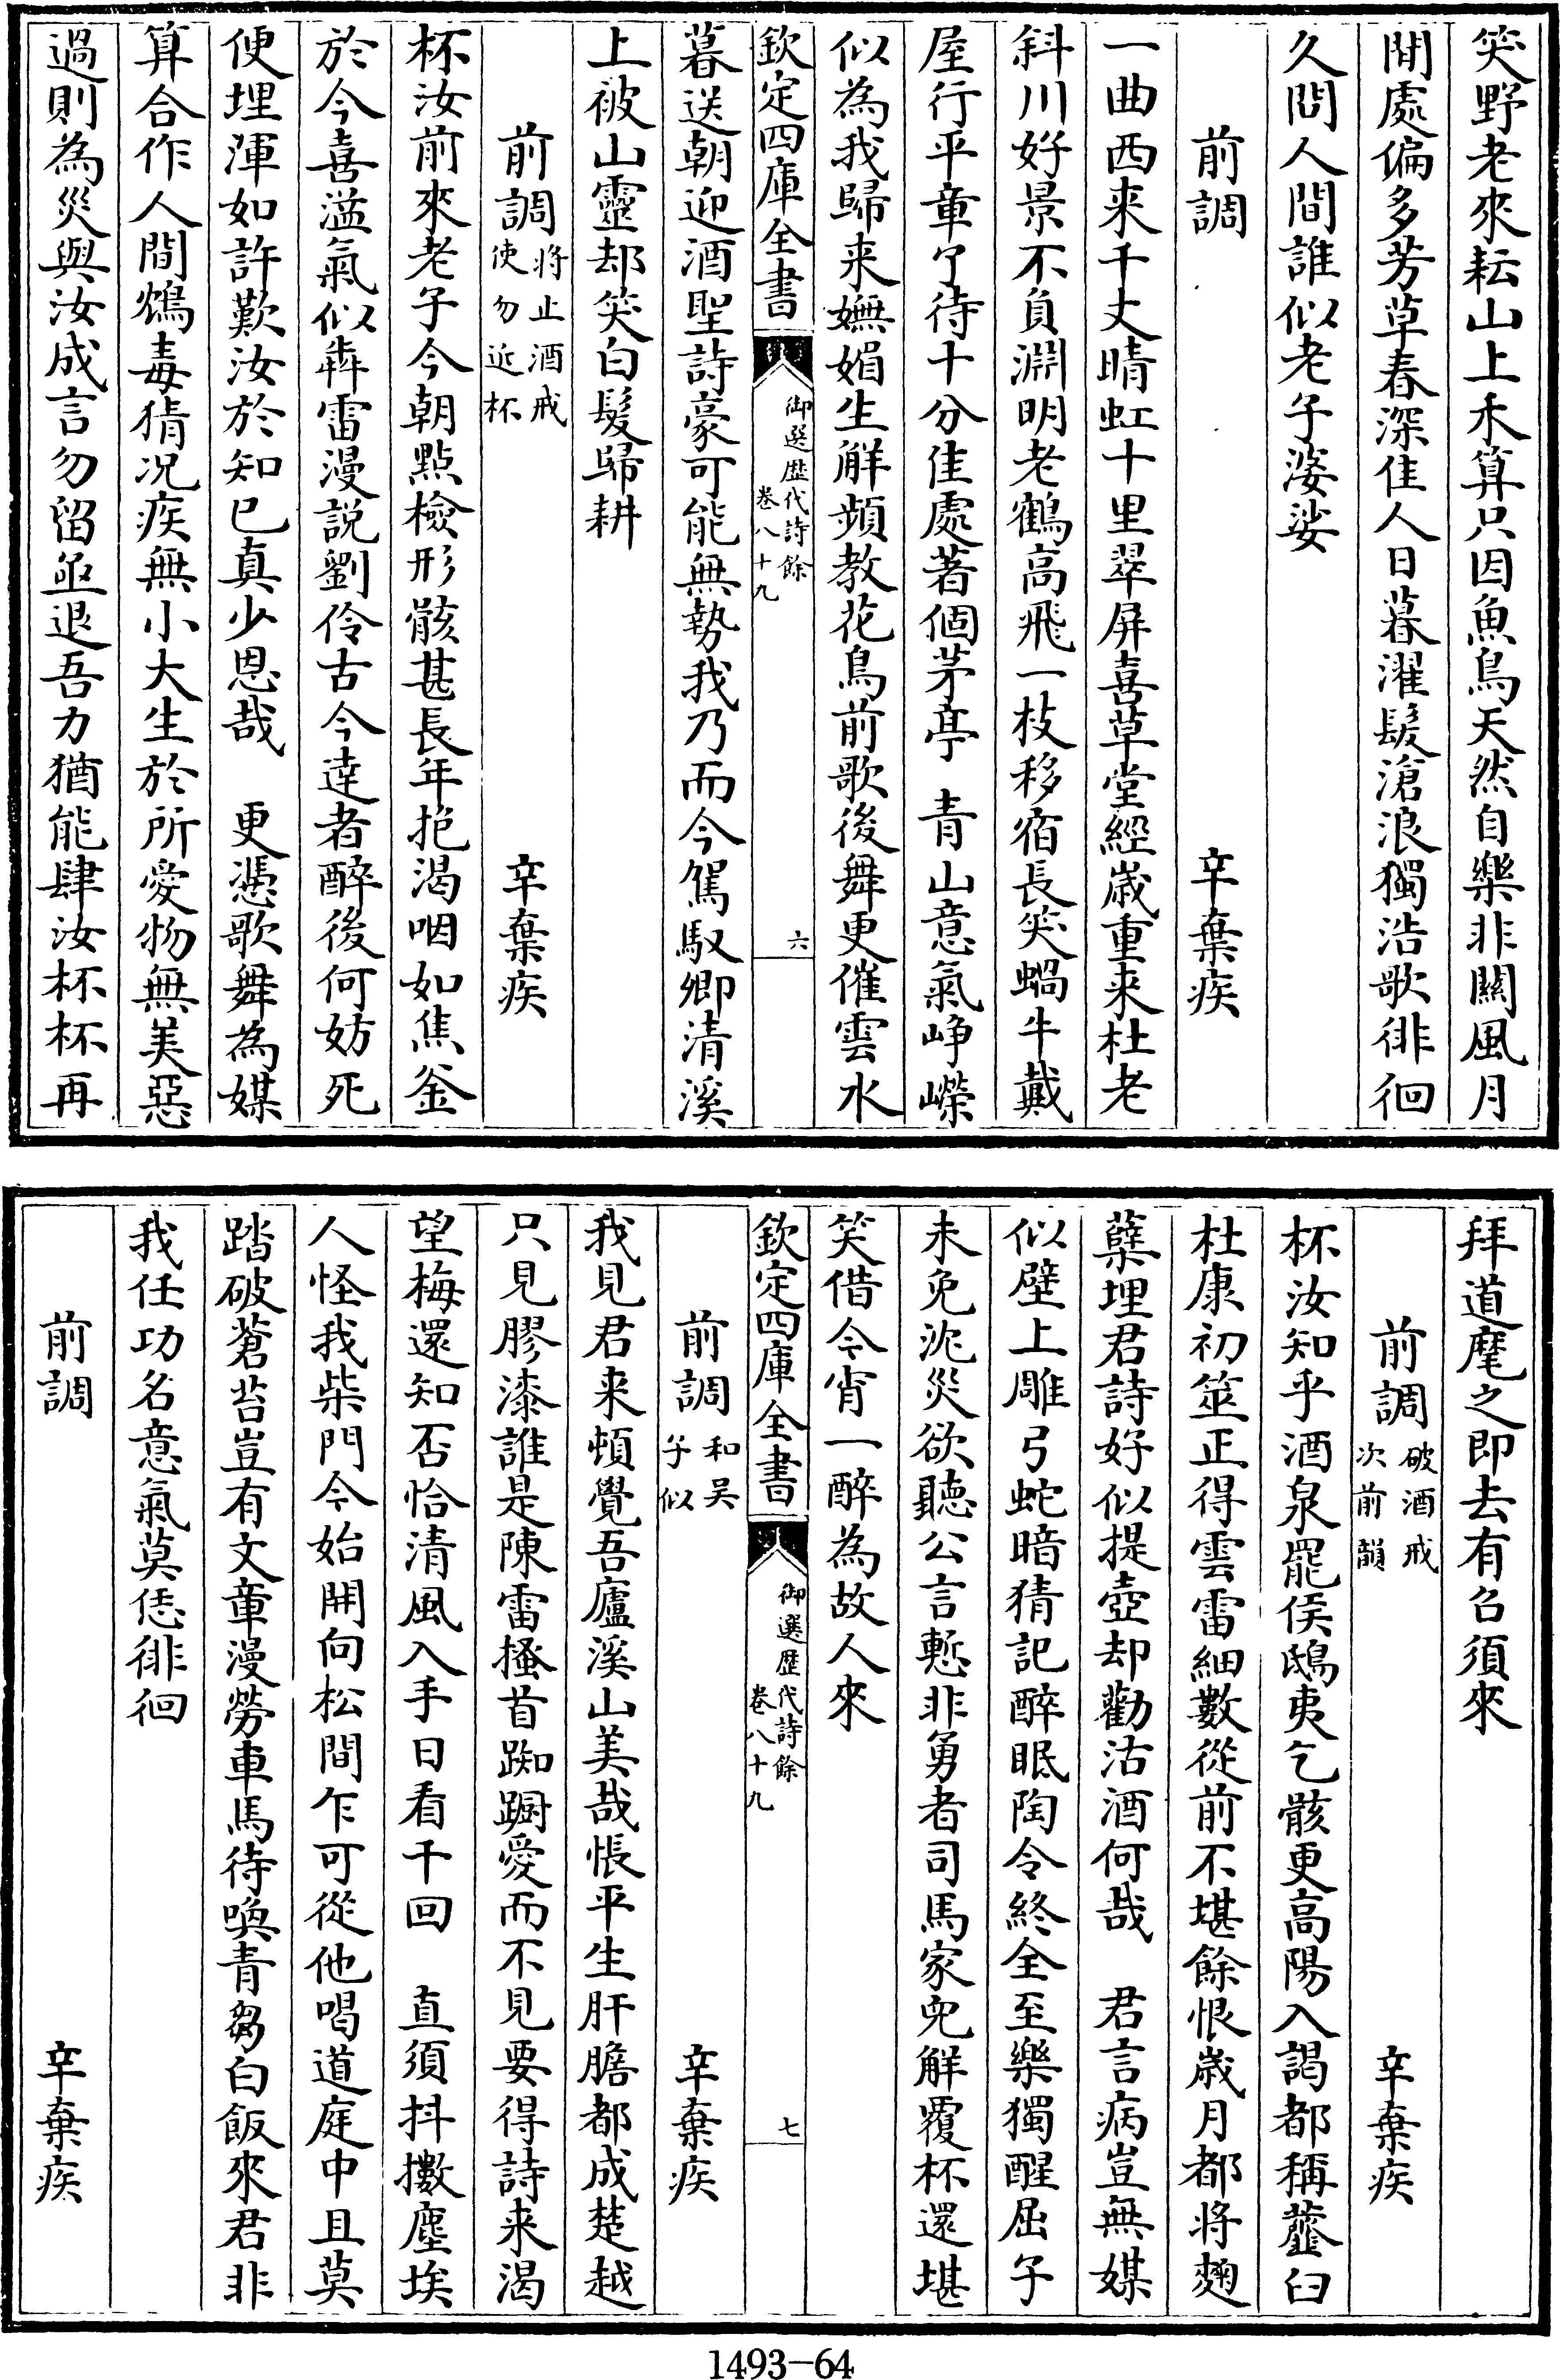 笑野老來耘山上禾算只因魚鳥天然自樂非關風月
閒處偏多芳草春深佳人日暮濯髮滄浪獨浩歌徘徊
久問人間誰似老子婆娑
前調 辛棄疾
一曲西来千丈晴虹十里翠屏喜草堂經歲重来杜老
斜川好景不負淵明老鶴高飛一枝移宿長笑蝸牛戴
屋行平章了待十分佳處著個茅亭 青山意氣崢嶸
似為我歸来嫵媚生解頻教花鳥前歌後舞更催雲水
欽定四庫全書 御選歷代詩餘 卷八十九 六
暮送朝迎酒聖詩豪可能無勢我乃而今駕馭卿清溪
上被山靈却笑白髮歸耕
前調 将止酒戒使勿近杯 辛棄疾
杯汝前來老子今朝點檢形骸甚長年抱渴咽如焦釜
於今喜溢氣似犇雷漫説劉伶古今達者醉後何妨死
便埋渾如許歎汝於知已真少恩哉 更憑歌舞為媒
算合作人間鴆毒猜况疾無小大生於所愛物無美惡
過則為災與汝成言勿留亟退吾力猶能肆汝杯杯再
拜道麾之即去有召須來
前調 破酒戒次前韻 辛棄疾
杯汝知乎酒泉罷侯鴟夷乞骸更高陽入謁都稱虀臼
杜康初筮正得雲雷細數從前不堪餘恨歲月都將麴
蘖埋君詩好似提壺却勸沽酒何哉 君言病豈無媒
似壁上雕弓蛇暗猜記醉眠陶令終全至樂獨醒屈子
未免沈災欲聽公言慙非勇者司馬家兒解覆杯還堪
笑借今宵一醉為故人來
欽定四庫全書 御選歷代詩餘 卷八十九 七
前調 和吴子似 辛棄疾
我見君来頓覺吾廬溪山美哉悵平生肝膽都成楚越
只見膠漆誰是陳雷搔首踟蹰愛而不見要得詩来渴
望梅還知否恰清風入手日看千回 直須抖擻塵埃
人怪我柴門今始開向松間乍可從他喝道庭中且莫
踏破蒼苔豈有文章漫勞車馬待喚青芻白飯來君非
我任功名意氣莫恁徘徊
前調 辛棄疾
1493-64